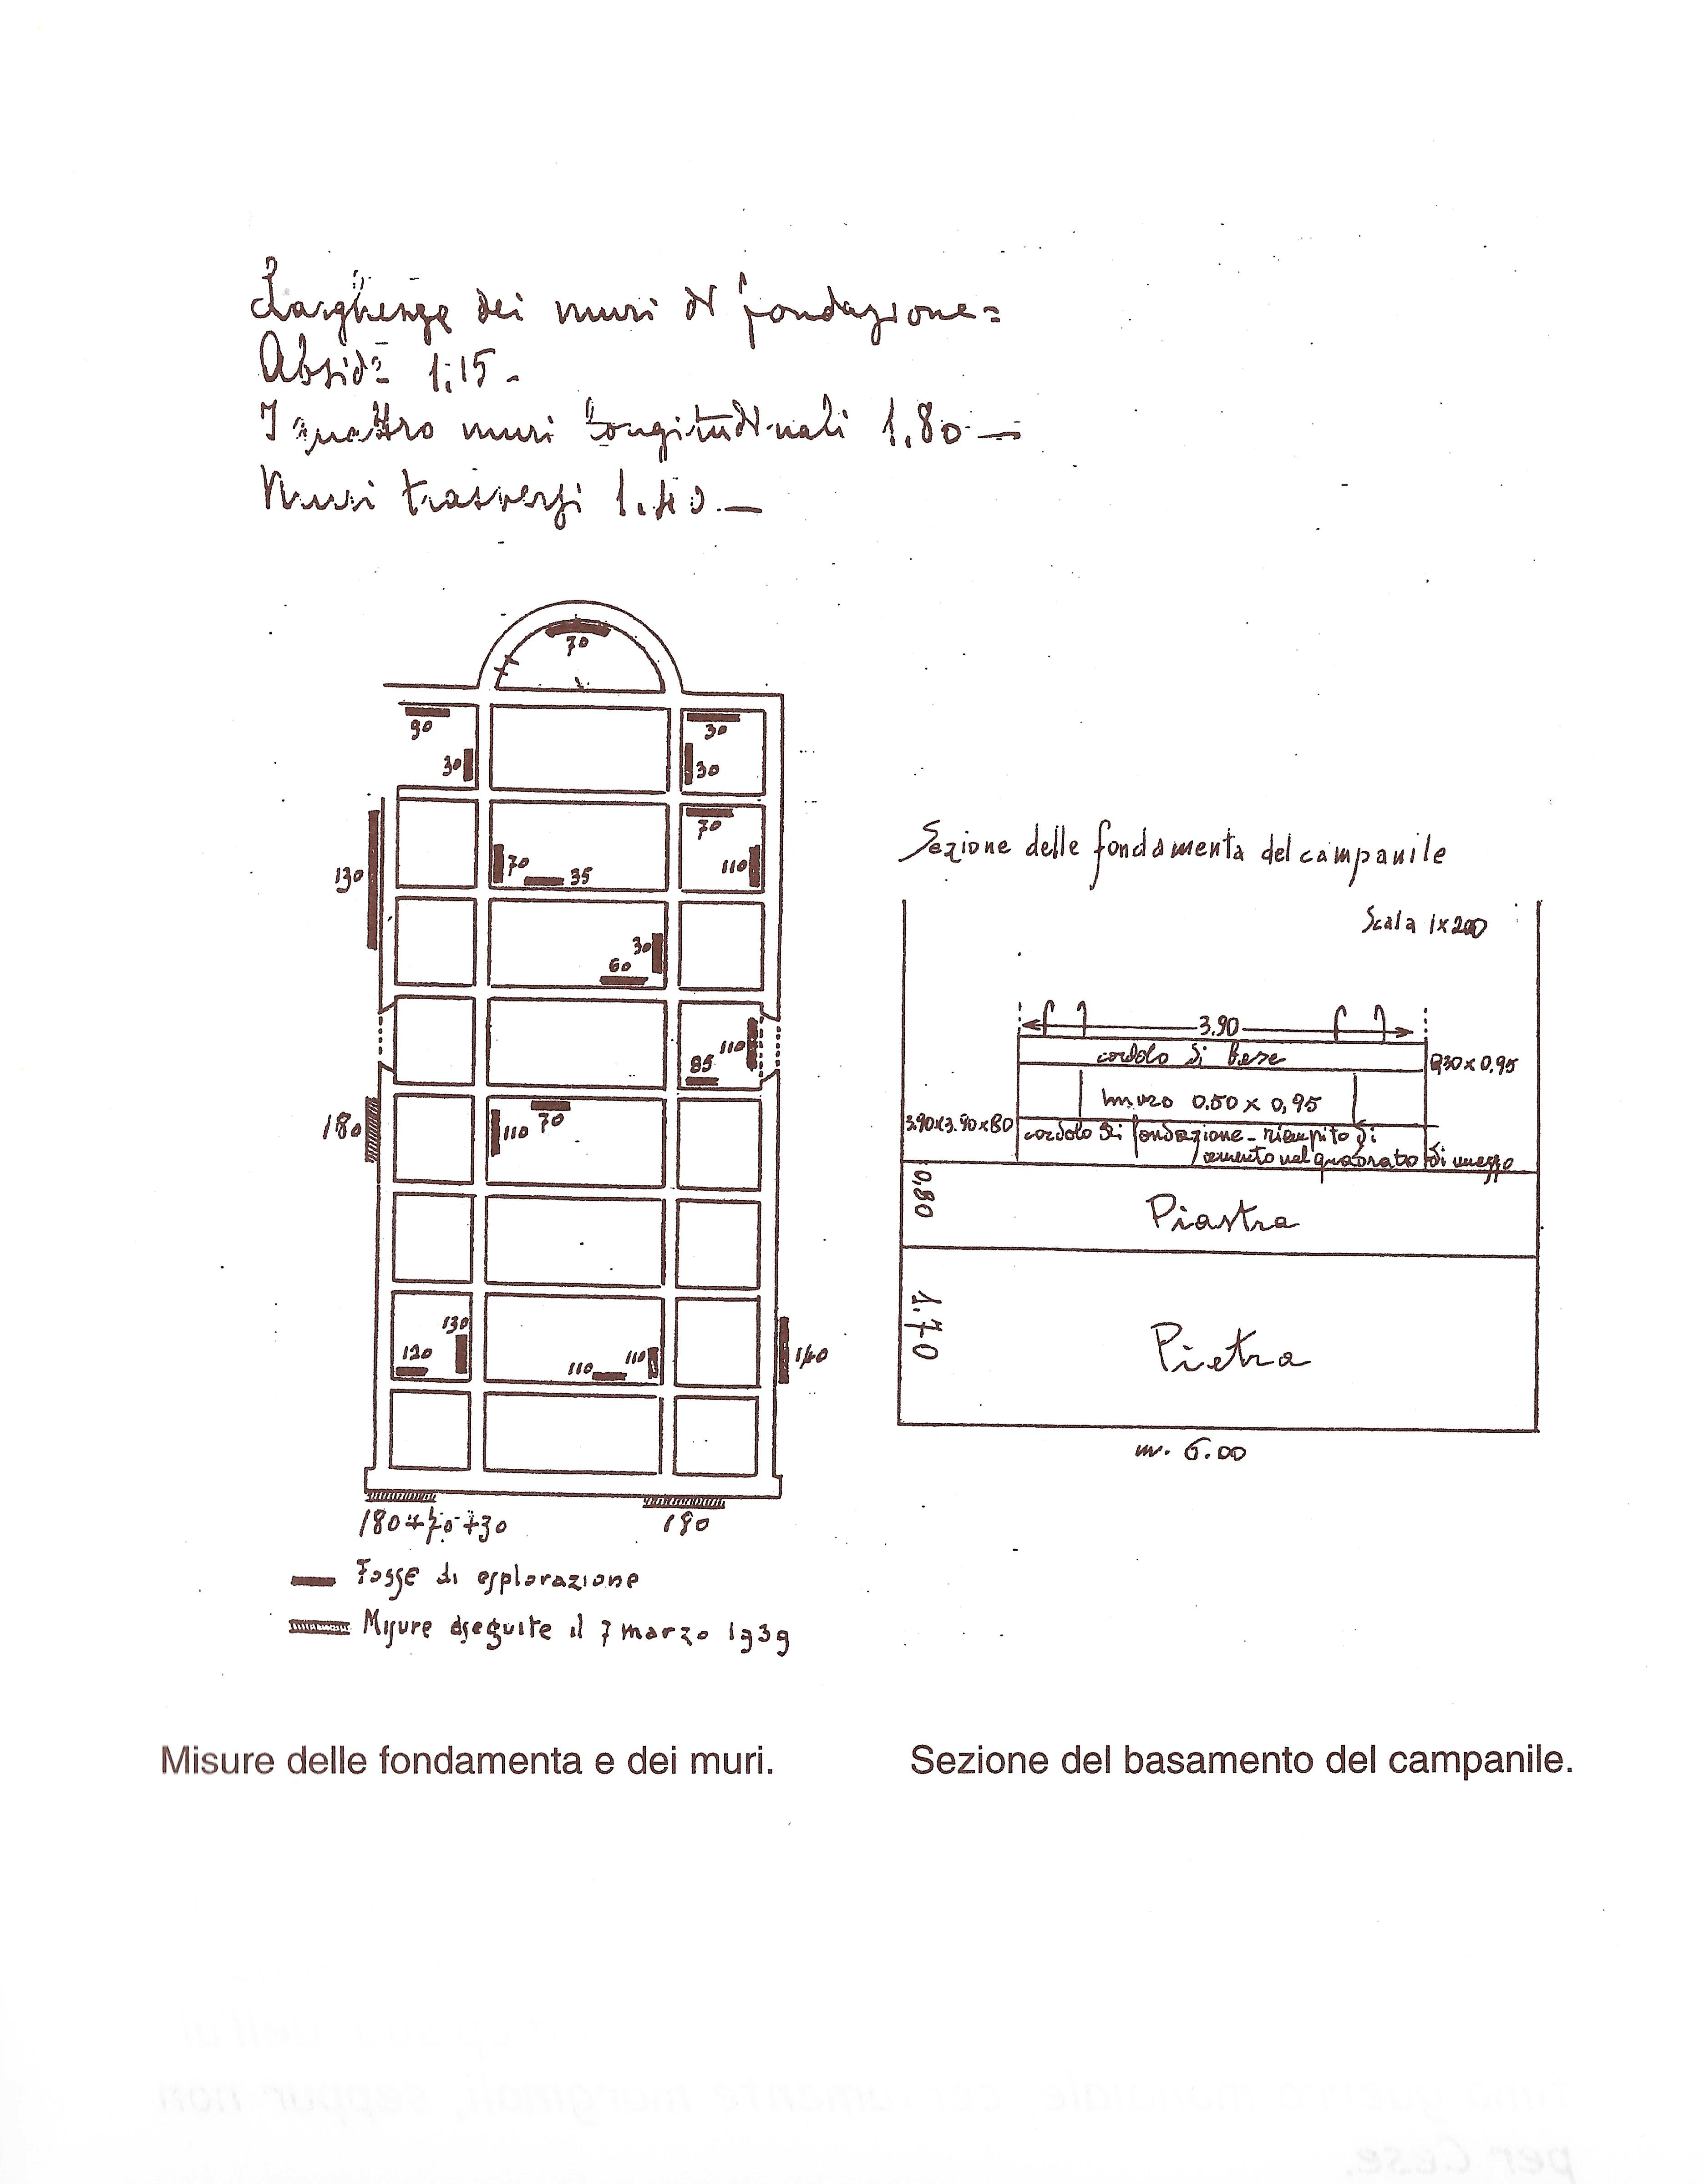 Larghezza dei muri di fondazione=
Abside 1,15-
I quattro muri longitudinali 1.80—
Muri trasversi 1.40.—
70
90
30
30
30
70
110
130
70
35
30
60
110
85
180
110
70
130
120
110
110
140
180+70+30
180
Fosse di esplorazione
Misure eseguite il 7 marzo 1939
Sezione delle fondamenta del campanile
Scala 1x200
3.90
cordolo di base
0,30x0,95
muro 0.50x0,95
3.90x3.90x80
cordolo di fondazione- riempito di
cemento nel quadrato di mezzo
0,80
Piastra
1.70
Pietra
m. 6.00
Misure delle fondamenta e dei muri.
Sezione del basamento del campanile.